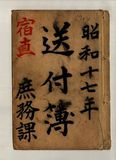 昭和十七年
送付簿
宿直
庶務課